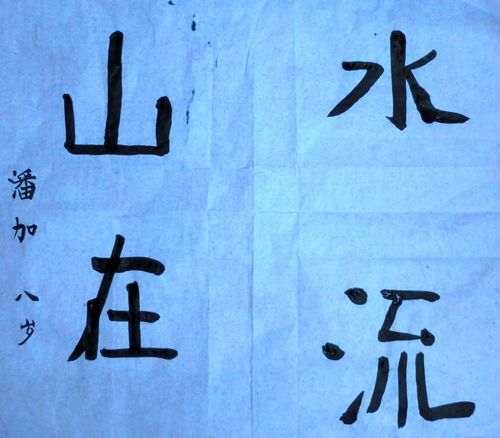 水流
山在
潘加 八岁